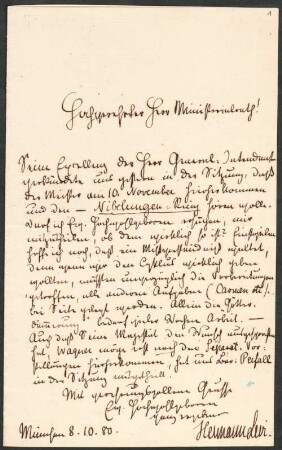 Hochgeehrter Herr Ministerialrath!
Seine Excellenz der Herr General-Intendant
verkündete uns gestern in der Sitzung, daß
der Meister am 10. November hierherkommen
und den — Nibelungen-Ring hören wolle.
Darf ich Ew. Hochwohlgeboren ersuchen, mir
mitzutheilen, ob dem wirklich so ist?
hoffe ich noch, daß ein Mißverständniß waltet,
denn wenn wir den Cyklus wirklich geben
wollten, müßten die Vorbereitungen
getroffen, alle anderen Aufgaben (Carmen etc.)
bei Seite gelegt werden. Allein die Götter-
dämmerung bedarf jeder Wochen Arbeit. —
Auch daß Seine Majestät den Wunsch ausgesprochen
hat, Wagner möge erst nach den Separat-Vor-
stellungen hierherkommen, hat uns Bar. Perfall
in der Sitzung mitgetheilt.
Mit Gruße
Ew. Hochwohlgeboren
ganz ergebener
Hermann Levi.
München 8.10.80.